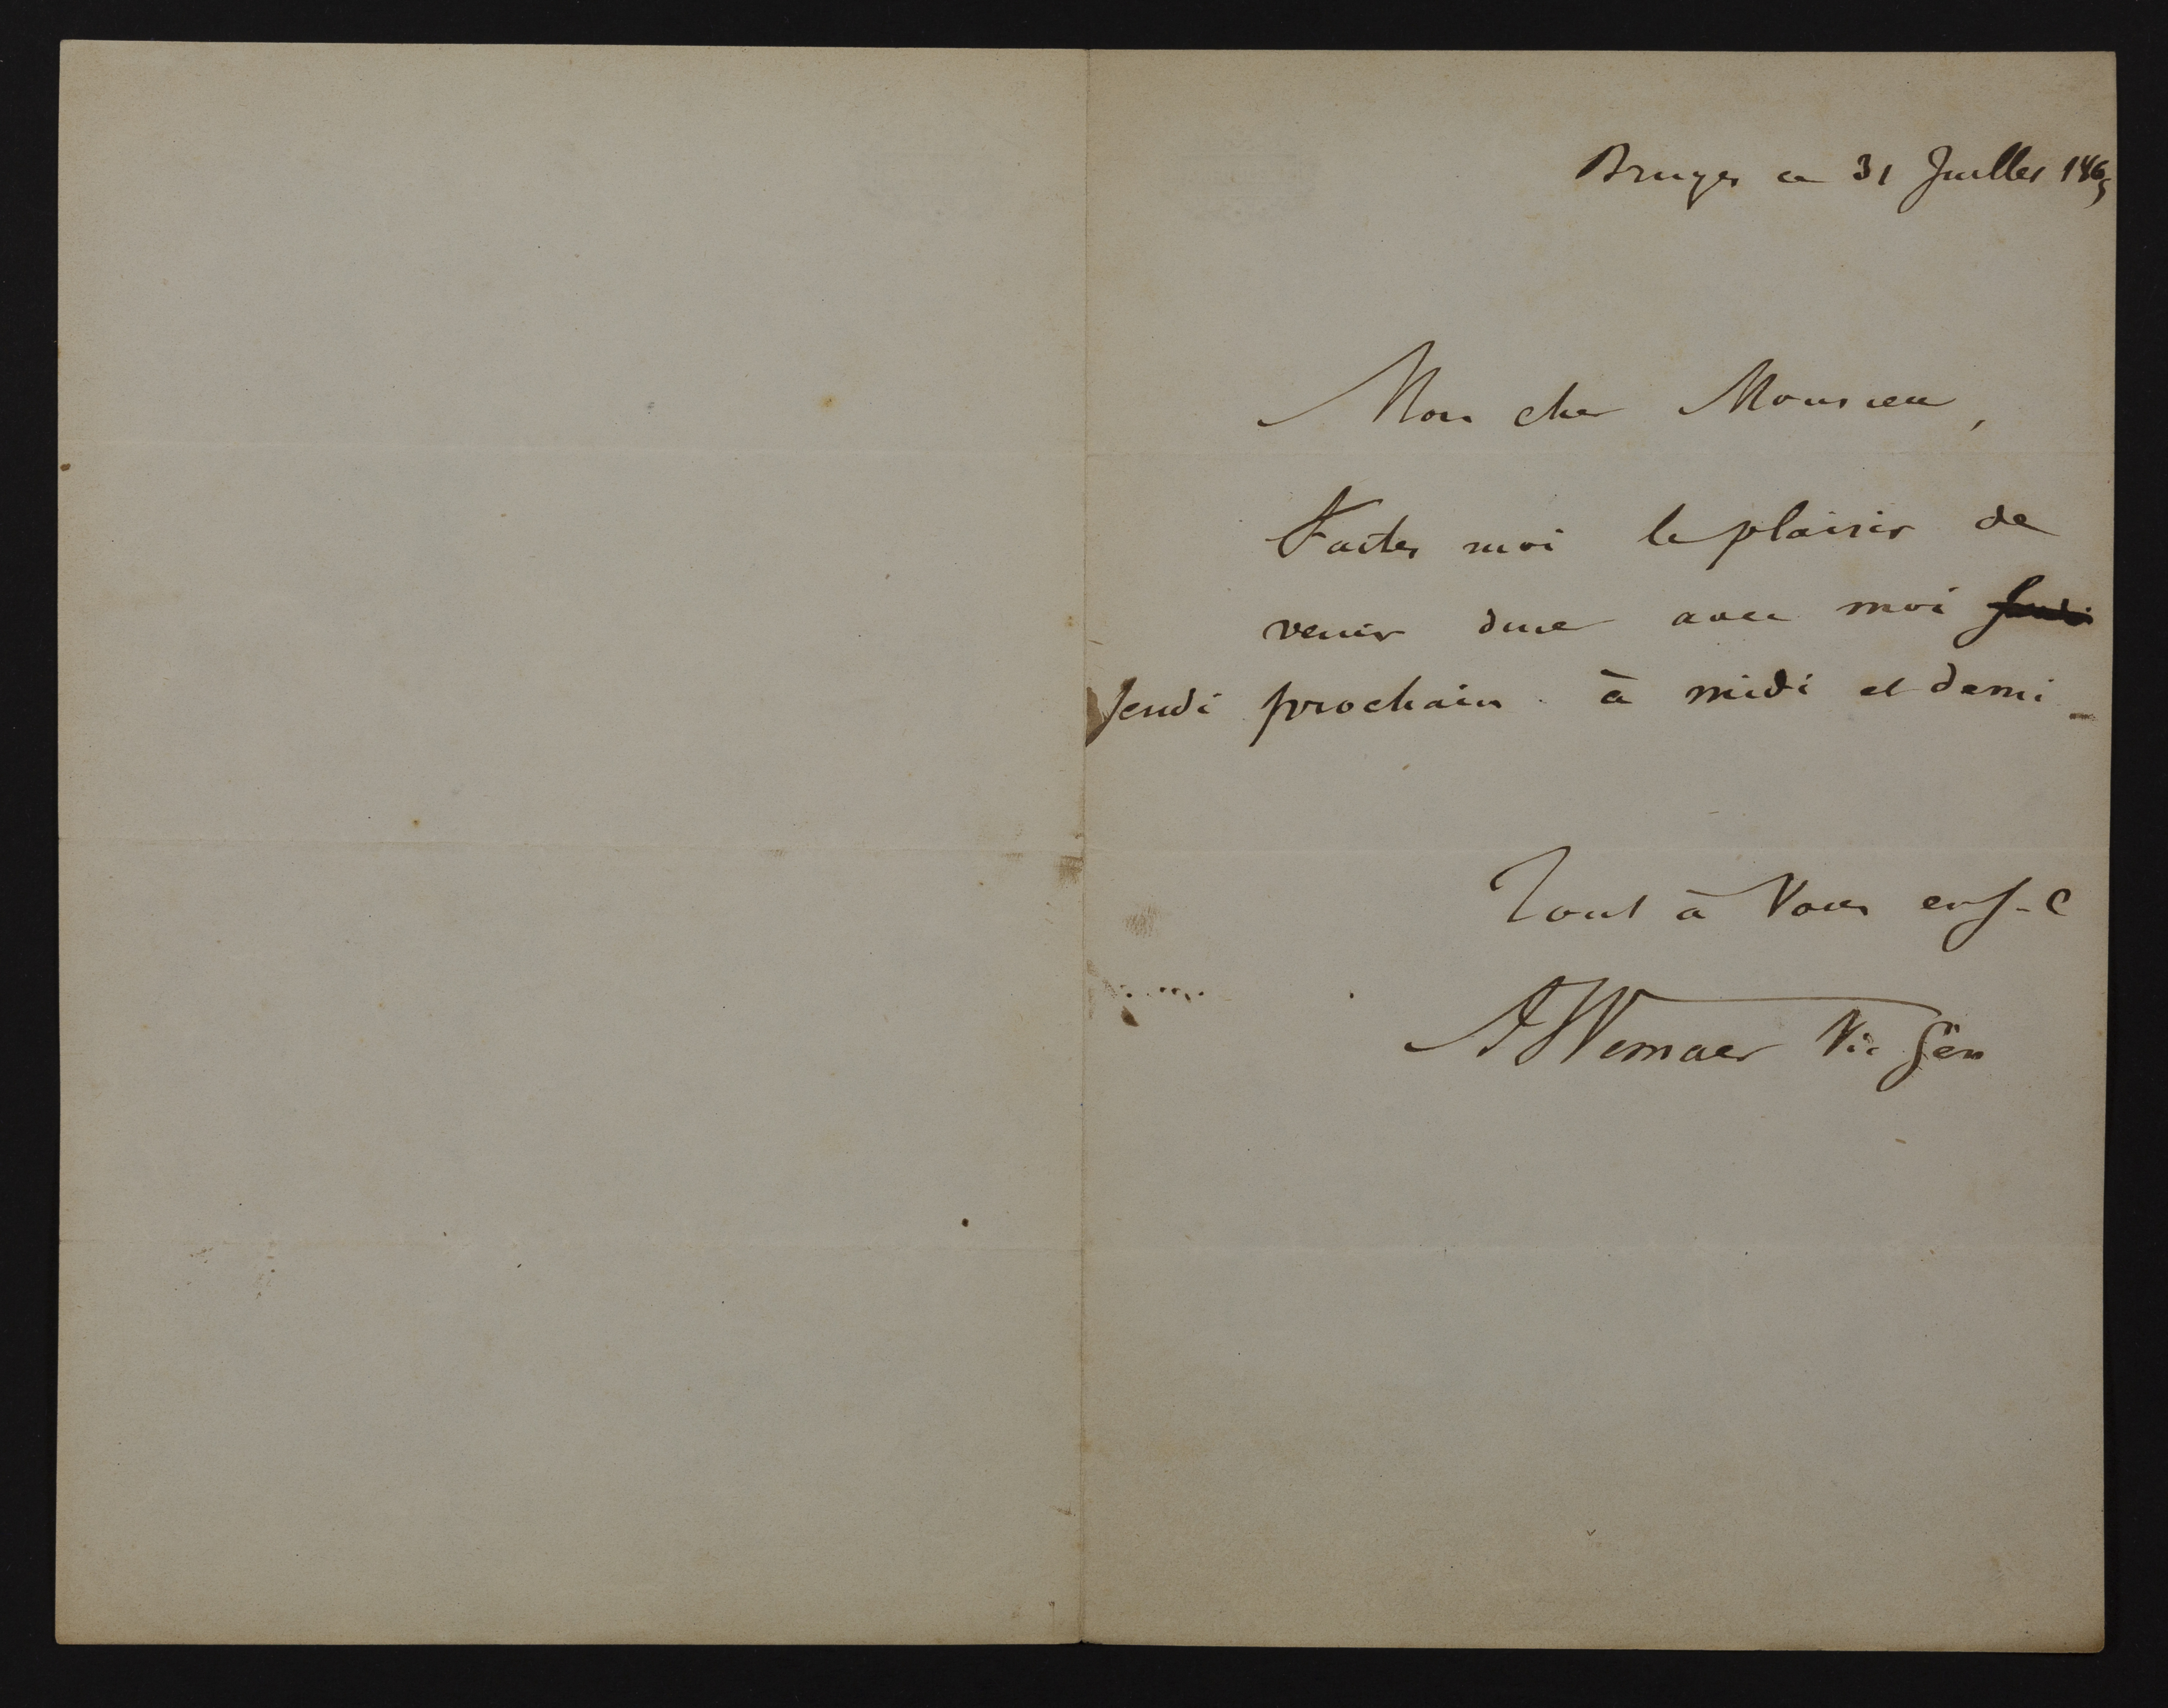 Bruges ce 31 Juillet 1865
Mon cher Monsieur,
Faites moi le plaisir de
venir diner avec moi
Jeudi prochain à midi et demi
Tout à Vous en J-C
A Wemaer Vic Gén